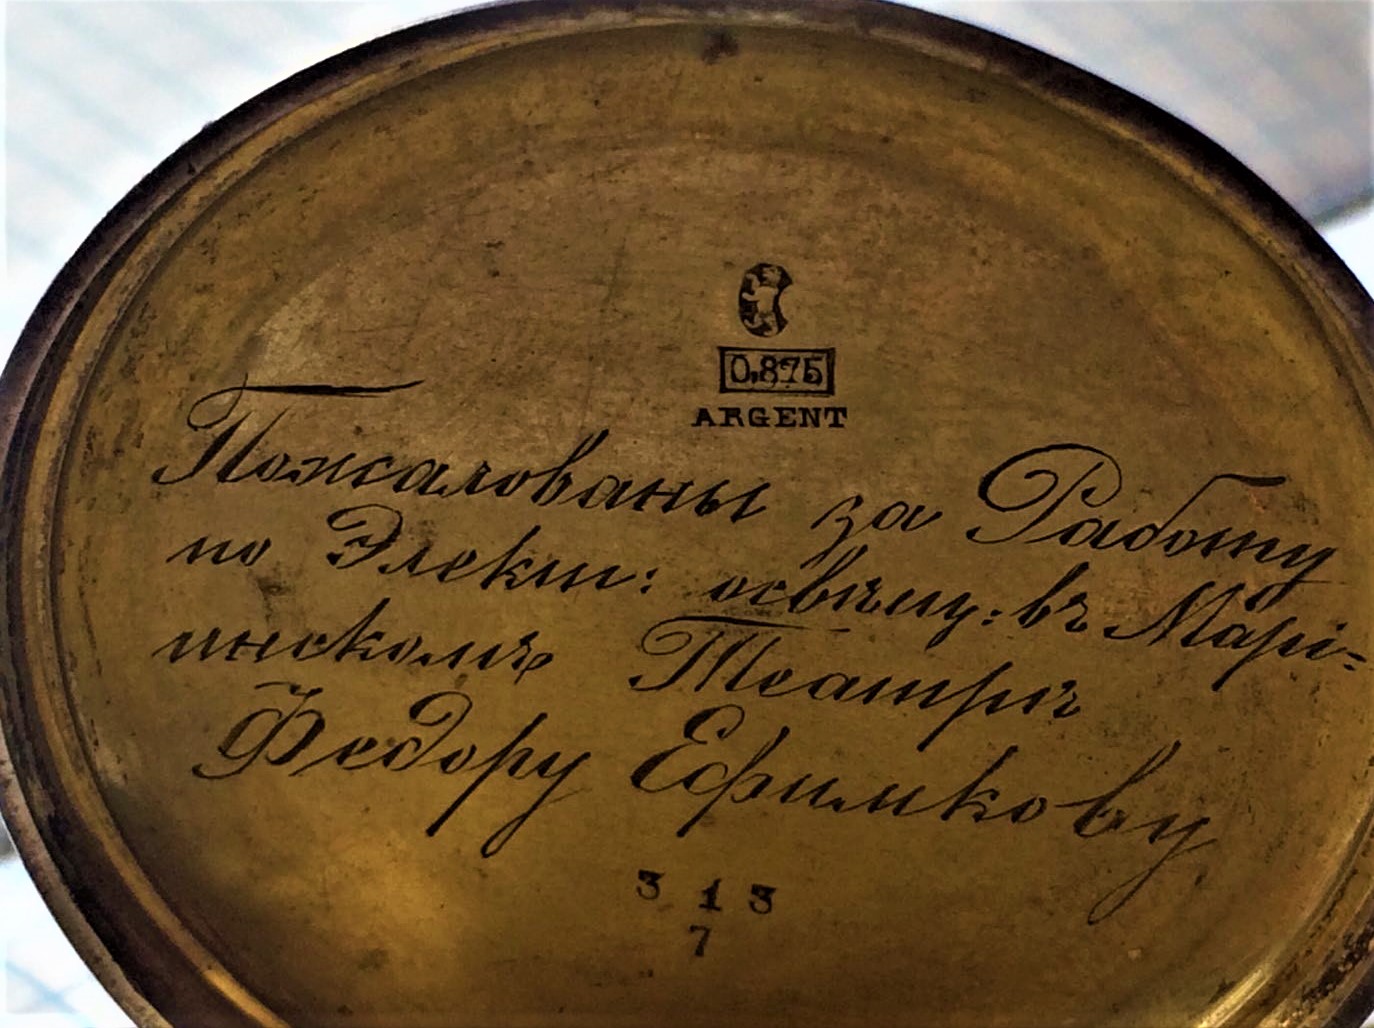 0,875
ARGENT
Пожалованы за Работу
по Элект: освѣщ: въ Марі=
инскомъ Театрѣ
Федору Ефимкову
3 1 3
7